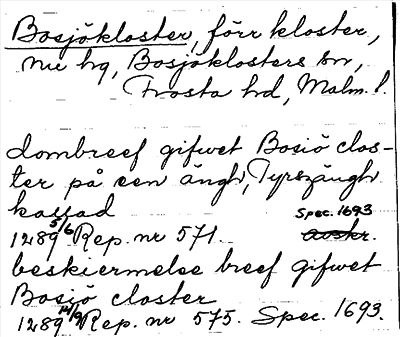 Bosjökloster, förr kloster,
nu hg, Bosjöklosters sn,
Frosta hd, Malm. l.
dombreef gifwet Bosiö clos-
ter på een ängh, Tyrszängh
kallad
Spec. 1693
1289 5/6 Rep. nr 571. Avskr.
beskiermelse breef gifwet
Bosiö closter
1289 14/9 Rep. nr 575. Spec. 1693.